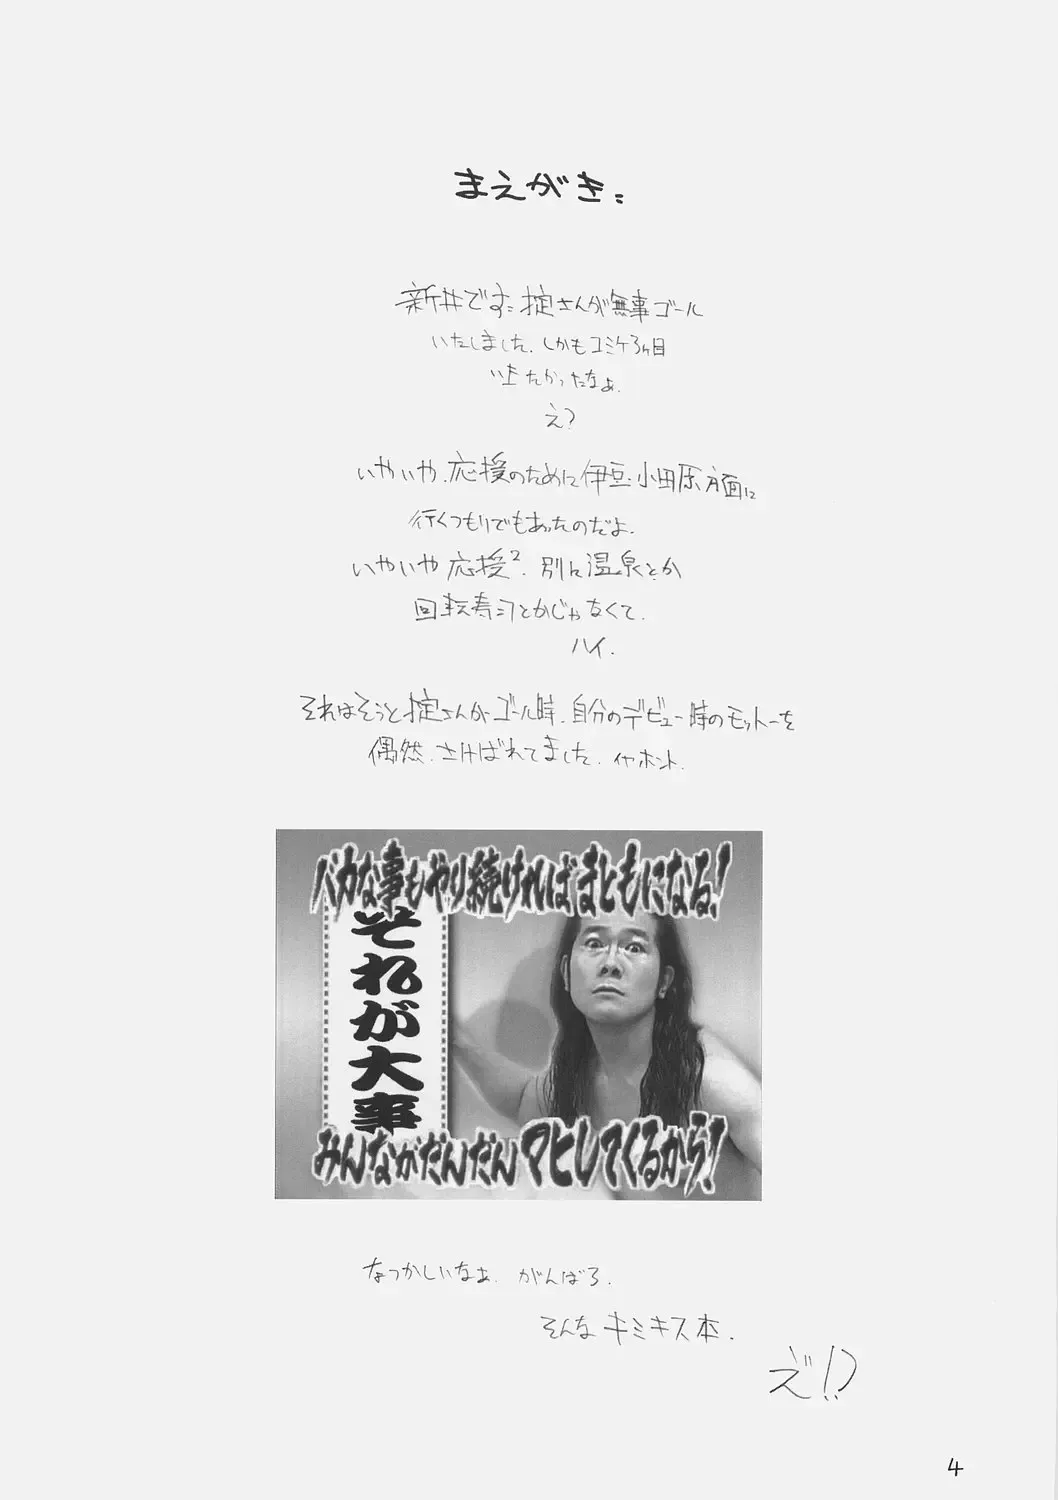 まえがき:
新井です。掟さんが無事ゴール
いたしました.しかもコミケ3ヶ目
いたかったなぁ.
え?
いやいや.応援のために伊豆・小田原方面に
行くつもりでもあったのだよ.
いやいや応援².別に温泉とか
回転寿司とかじゃなくて.
ハイ.
それはそうと掟さんがゴール時.自分のデビュー時のモットーを
偶然.さけばれてました.イヤホント.
バカな事もやり続ければまともになる!
それが大事
みんながだんだんマヒしてくるから!
なつかしいなぁ.がんばろ.
そんなキミキス本.
え"!?
4